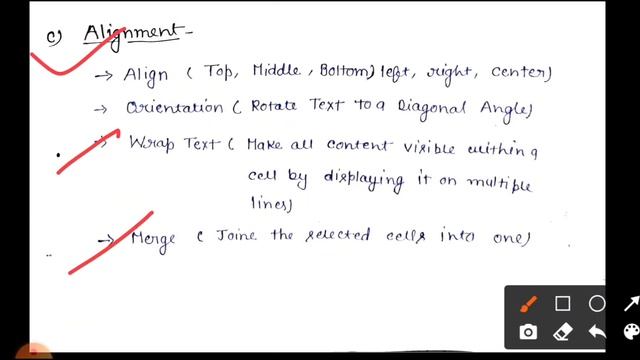 c) Alignment -
→ Align ( Top, Middle, Bottom) left, right, center)
→ Orientation ( Rotate Text to a Diagonal Angle)
→ Wrap Text ( Make all content visible within a
cell by displaying it on multiple
lines)
→ Merge ( Joine the selected cells into one)